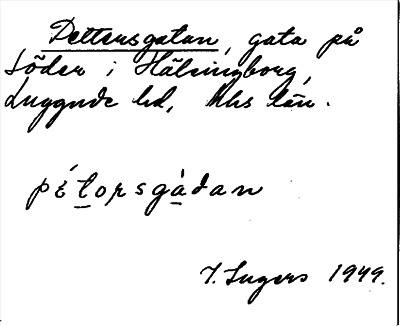 Pettersgatan, gata på
Söder i Hälsingborg,
Luggude hd, Mhs län.
pétorsgàdan
I. Ingers 1949.